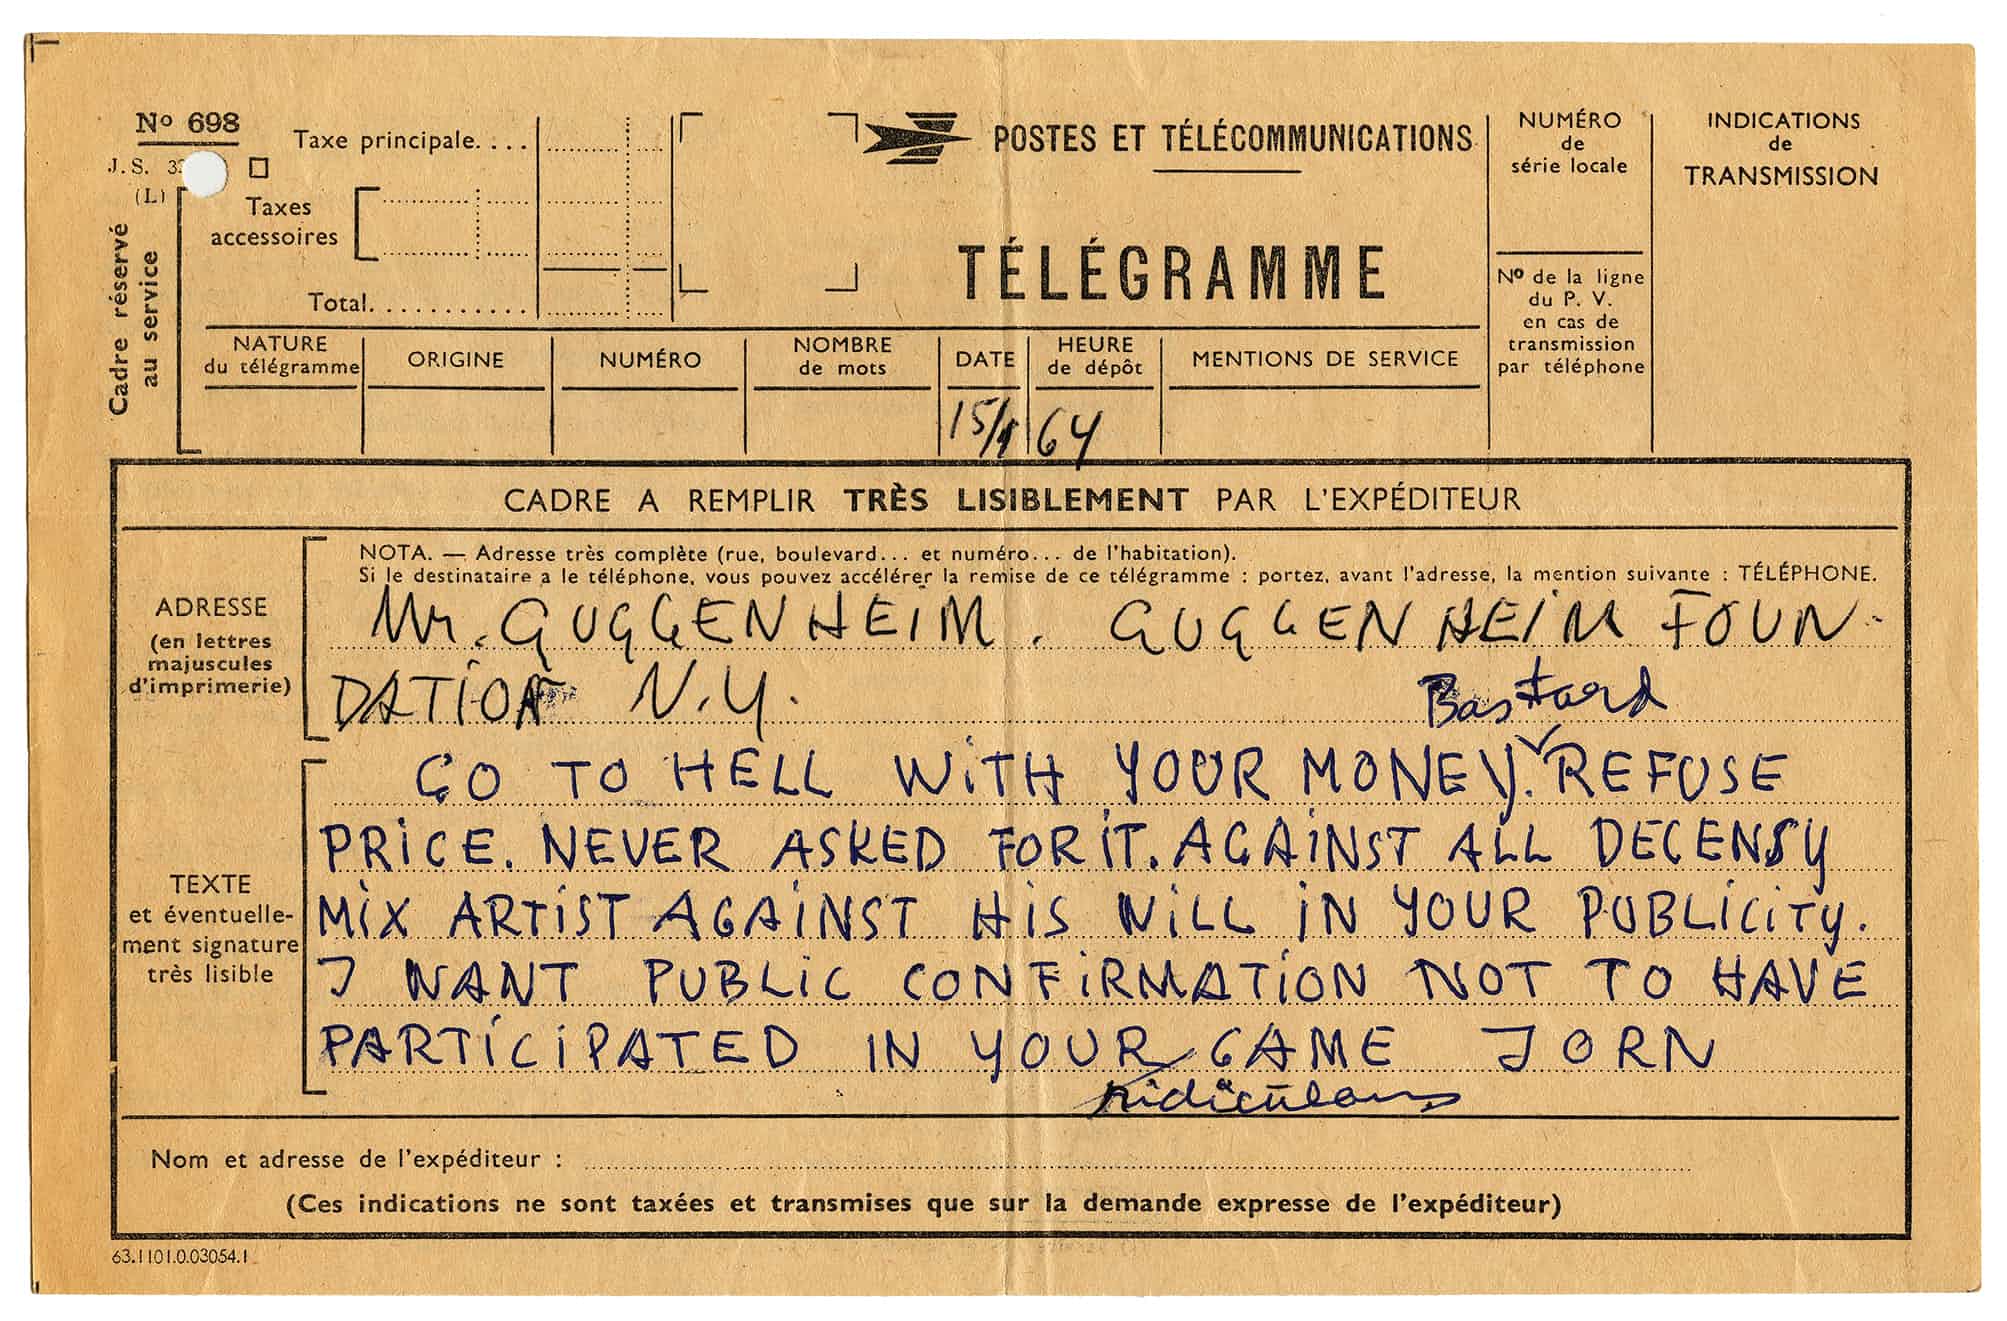 Nº 698
J. S. 3
(L)
Taxe principale. . . .
Taxes
accessoires
Total. . . . . . . . . . .
Cadre réservé
au service
POSTES ET TÉLÉCOMMUNICATIONS
TÉLÉGRAMME
NUMÉRO
de
série locale
INDICATIONS
de
TRANSMISSION
Nº de la ligne
du P. V.
en cas de
transmission
par téléphone
NATURE
du télégramme
ORIGINE
NUMÉRO
NOMBRE
de mots
DATE
HEURE
de dépôt
MENTIONS DE SERVICE
15/1 64
CADRE A REMPLIR TRÈS LISIBLEMENT PAR L'EXPÉDITEUR
ADRESSE
(en lettres
majuscules
d'imprimerie)
NOTA. — Adresse très complète (rue, boulevard... et numéro... de l'habitation).
Si le destinataire a le téléphone, vous pouvez accélérer la remise de ce télégramme : portez, avant l'adresse, la mention suivante : TÉLÉPHONE.
Mr. GUGGENHEIM. GUGGENHEIM FOUN-
DATION N.Y.
TEXTE
et éventuelle-
ment signature
très lisible
Bastard
GO TO HELL WITH YOUR MONEY. REFUSE
PRICE. NEVER ASKED FOR IT. AGAINST ALL DECENSY
MIX ARTIST AGAINST HIS WILL IN YOUR PUBLICITY.
I WANT PUBLIC CONFIRMATION NOT TO HAVE
PARTICIPATED IN YOUR GAME JORN
ridiculous
Nom et adresse de l'expéditeur :
(Ces indications ne sont taxées et transmises que sur la demande expresse de l'expéditeur)
63.1101.0.03054.1